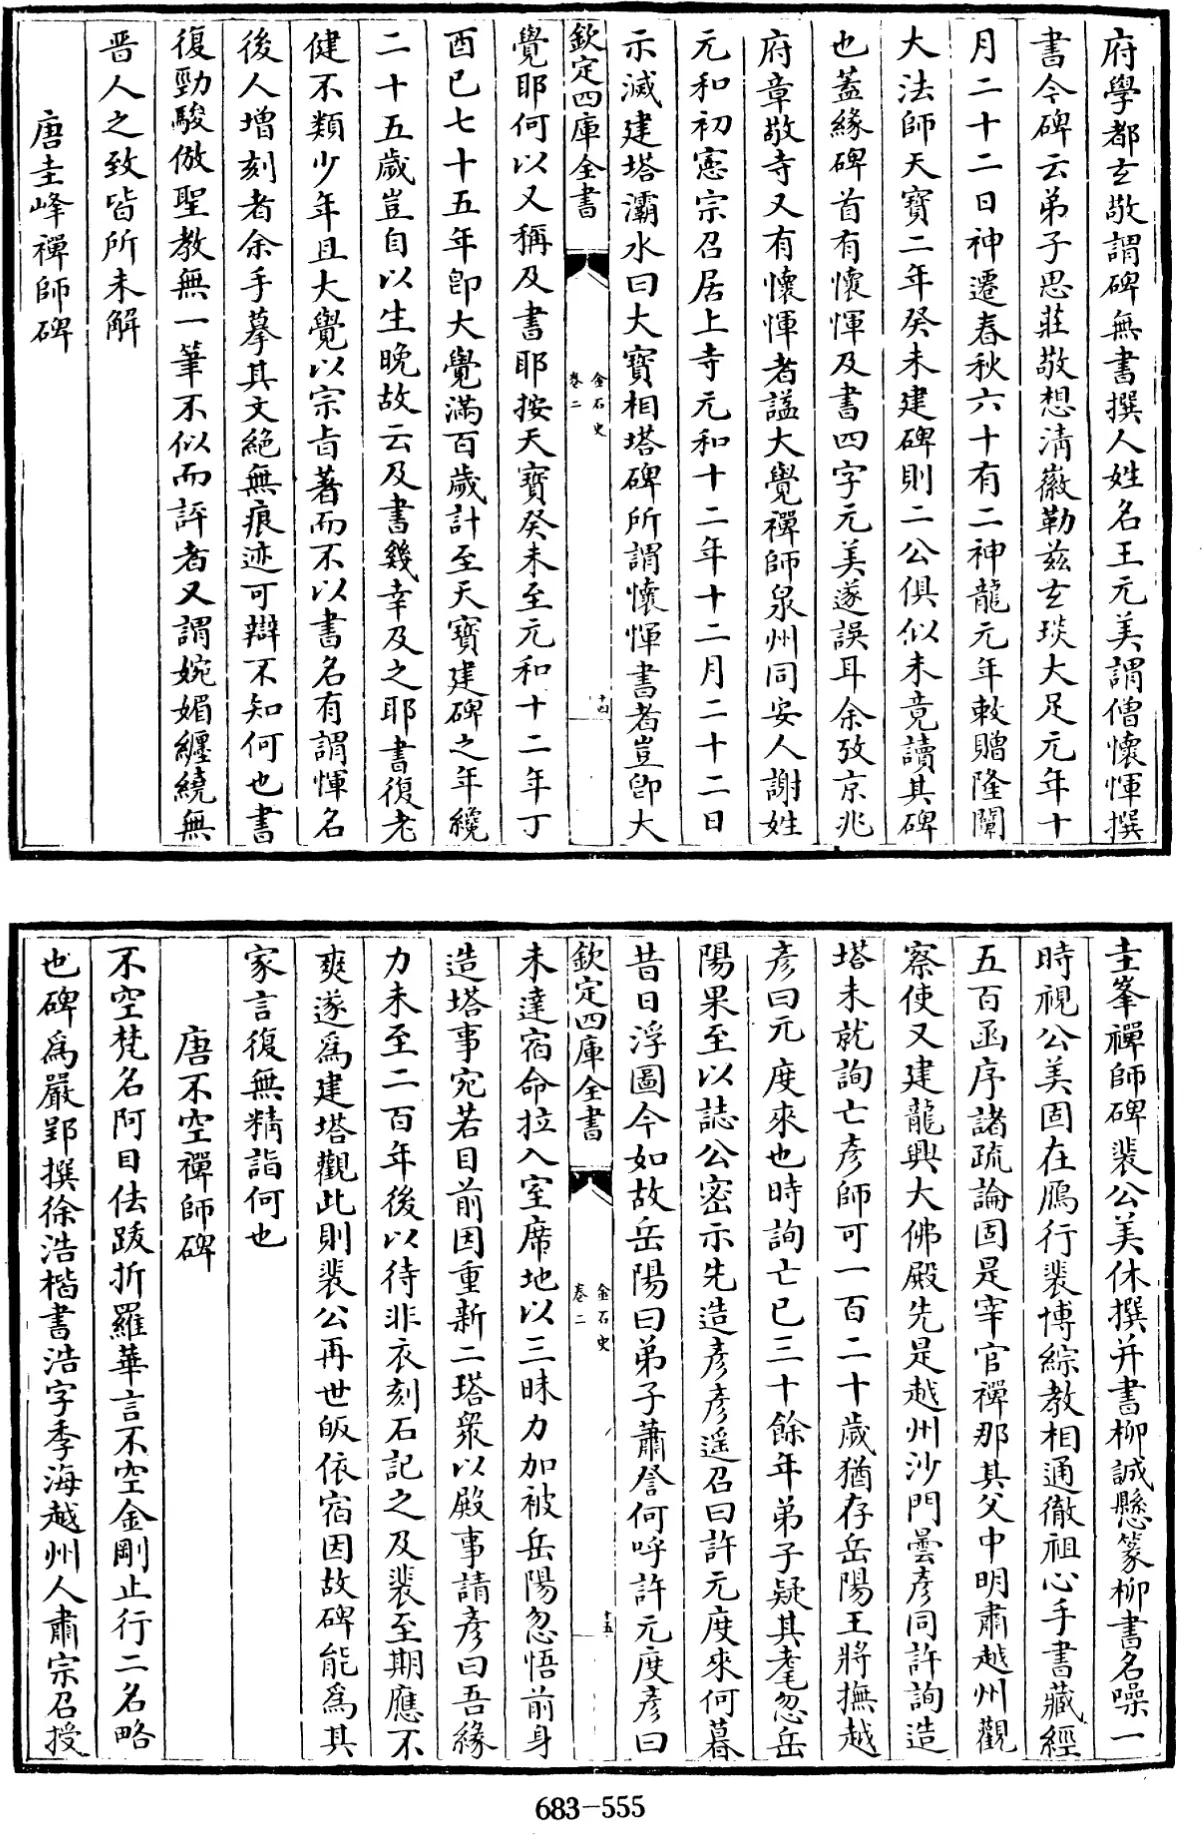 府學都玄敬謂碑無書撰人姓名王元美謂僧懷惲撰
書今碑云弟子思莊敬想清徽勒兹玄琰大足元年十
月二十二日神遷春秋六十有二神龍元年敕贈隆闡
大法師天寶二年癸未建碑則二公俱似未竟讀其碑
也蓋緣碑首有懷惲及書四字元美遂誤耳余攷京兆
府章敬寺又有懷惲者諡大覺禪師泉州同安人謝姓
元和初憲宗召居上寺元和十二年十二月二十二日
示滅建塔灞水曰大寶相塔碑所謂懷惲書者豈卽大
欽定四庫全書
金石史
卷二
十四
覺耶何以又稱及書耶按天寶癸未至元和十二年丁
酉已七十五年卽大覺滿百歲計至天寶建碑之年纔
二十五歲豈自以生晚故云及書幾幸及之耶書復老
健不類少年且大覺以宗旨著而不以書名有謂惲名
後人增刻者余手摹其文絶無痕迹可辯不知何也書
復勁駿倣聖教無一筆不似而評者又謂婉媚纏繞無
晉人之致皆所未解
唐圭峰禪師碑
圭峯禪師碑裴公美休撰并書柳誠懸篆柳書名噪一
時視公美固在鴈行裴博綜教相通徹祖心手書藏經
五百函序諸疏論固是宰官禪那其父中明肅越州觀
察使又建龍興大佛殿先是越州沙門曇彥同許詢造
塔未就詢亡彥師可一百二十歲猶存岳陽王將撫越
彥曰元度來也時詢亡已三十餘年弟子疑其耄忽岳
陽果至以誌公密示先造彥彥遥召曰許元度來何暮
昔日浮圖今如故岳陽曰弟子蕭詧何呼許元度彥曰
欽定四庫全書
金石史
卷二
十五
未達宿命拉入室席地以三昧力加被岳陽忽悟前身
造塔事宛若目前因重新二塔衆以殿事請彥曰吾緣
力未至二百年後以待非衣刻石記之及裴至期應不
爽遂爲建塔觀此則裴公再世皈依宿因故碑能爲其
家言復無精詣何也
唐不空禪師碑
不空梵名阿目佉跋折羅華言不空金剛止行二名略
也碑爲嚴郢撰徐浩楷書浩字季海越州人肅宗召授
683-555